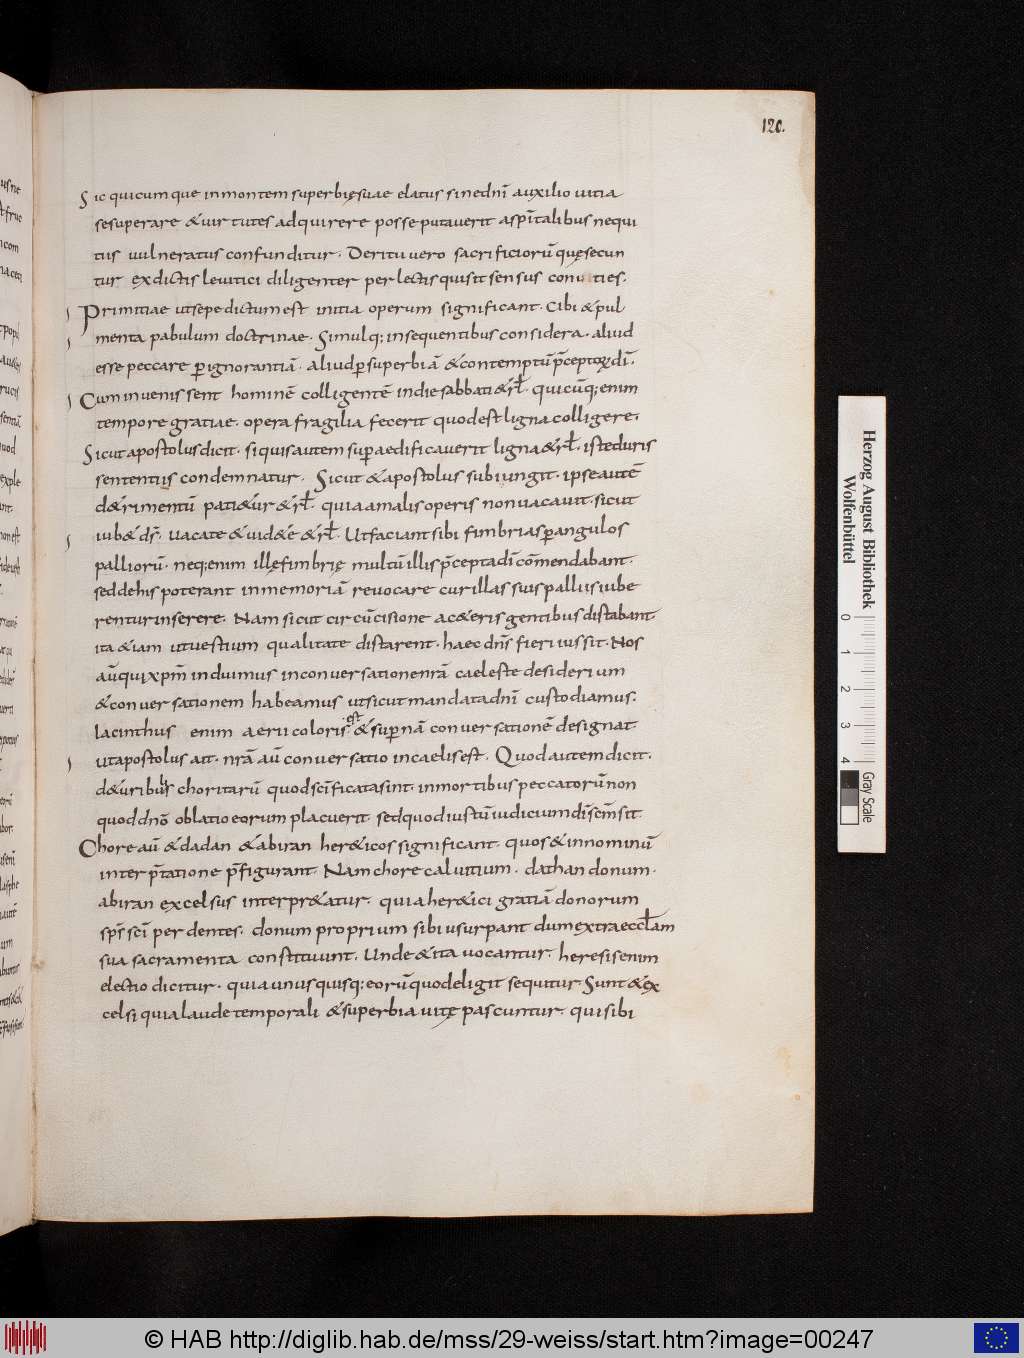 120.
Sic quicumque inmontem superbięsuae elatus sinednī auxilio uitia
sesuperare &uirtutes adquirere posse putauerit aspīitalibus nequi
tiis uulneratus confunditur. Deritu uero sacrificiorū quęsecun
tur exdictis leuitici diligenter perlectis quisit sensus conuities.
Primitiae utsepe dictum est initia operum significant. Cibi &pul
menta pabulum doctrinae. Simulq; insequentibus considera. aliud
esse peccare p̄ignorantiā. aliud p̄superbiā &contemptū p̄ceptorū dī.
Cum inuenissent hominē colligentē indie sabbati &rł. quicūq; enim
tempore gratiae. opera fragilia fecerit quodest ligna colligere.
Sicut apostolus dicit. siquis autem sup̄aedificauerit ligna &rł. iste duris
sententiis condemnatur. Sicut & apostolus subiungit. ipse autē
d&rimentū pati&ur &rł. quia amalis operis non uacauit. sicut
iub& dš. uacate &uid&e &rł. Ut faciant sibi fimbrias p̄angulos
palliorū. neq; enim illę fimbrię multū illis p̄cepta dī cōmendabant.
sed dehis poterant inmemoriā reuocare cur illas suis palliis iube
rentur inserere. Nam sicut circūcisione ac&eris gentibus distabant
ita &iam utuestium qualitate distarent. haec dn̄s fieri iussit. Nos
aū qui xpm̄ induimus inconuersatione nrā caeleste desiderium
&conuersationem habeamus ut sicut mandata dnī custodiamus.
Iacinthus enim aerii coloris est &sup̄nā conuersationē designat
ut apostolus ait. nrā aū conuersatio incaelis est. Quod autem dicit.
d&uribulis choritarū quod scīficata sint. inmortibus peccatorū non
quod dnō oblatio eorum placuerit sed quod iustū iudicium dī scēm sit.
Chore aū &dadan &abiran her&icos significant. quos &innominū
interp̄tatione p̄figurant. Nam chore caluitium. dathan donum.
abiran excelsus interpr&atur. quia her&ici gratiā donorum
spš scī perdentes. donum proprium sibi usurpant dum extra eccłam
sua sacramenta constituunt. Unde &ita uocantur. heresis enim
electio dicitur. quia unusquisq; eorū quod eligit sequitur. Sunt &ex
celsi quia laude temporali &superbia uitę pascuntur. qui sibi
Herzog August Bibliothek
Wolfenbüttel
0 1 2 3 4
Gray Scale
© HAB http://diglib.hab.de/mss/29-weiss/start.htm?image=00247